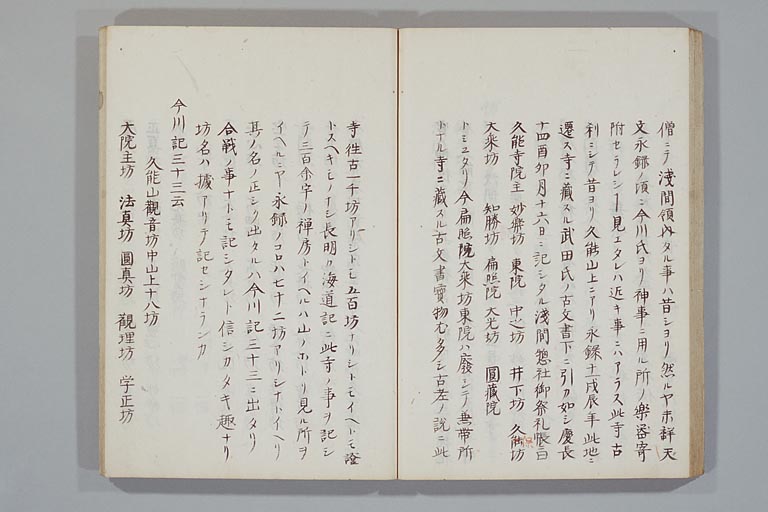 僧ニテ淺間領内タル事ハ昔シヨリ然ルヤ未詳天
文永録ノ頃ニ今川氏ヨリ神事ニ用ル所ノ樂器寄
附セラレシヿ見エタレハ近キ事ニハアラス此寺古
刹ニシテ昔ヨリ久能山上ニアリ永録十戊辰年此地ニ
遷ス寺ニ藏スル武田氏ノ古文書下ニ引カ如シ慶長
十四酉卯月十六日ニ記シタル淺間惣社御祭礼帳曰
久能寺院主 妙樂坊 東院 中之坊 井下坊 久能坊
大乘坊 知勝坊 扁照院 大光坊 圓藏院
トミユタリ今扁照院大乘坊東院ハ廢シテ無帶所
トナル寺ニ藏スル古文書寳物尤多シ古老ノ説ニ此
寺徃古一千坊アリシトモ五百坊ナリシトモイヘトモ證
トスヘキモノナシ長明カ海道記ニ此寺ノ事ヲ記シ
テ三百余宇ノ禅房トイヘルハ山ノホトリ見ル所ヲ
イヘルニヤ永録ノコロハ七十二坊アリシナトイヘリ
其ノ名ノ正シク出タルハ今川記三十三ニ出タリ
合戰ノ事ナトモ記シタレト信シカタキ趣ナリ
坊名ハ據アリテ記セシナランカ
今川記三十三云
久能山觀音坊中山上十八坊
大院主坊 法真坊 圓真坊 觀理坊 学正坊